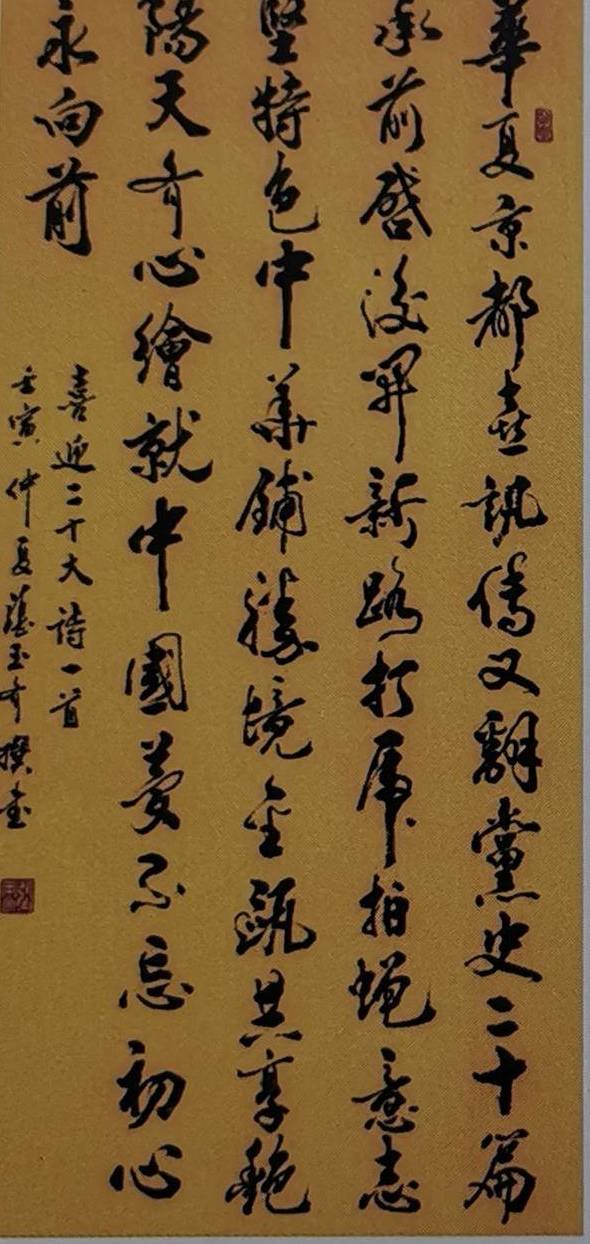 華夏京都喜訊傳又翻黨史二十篇
承前啓後開新路打虎拍蠅意志
堅特色中華鋪勝境金甌共享艷
陽天齐心繪就中國夢不忘初心
永向前
喜迎二十大詩一首
壬寅仲夏薩玉齐撰書